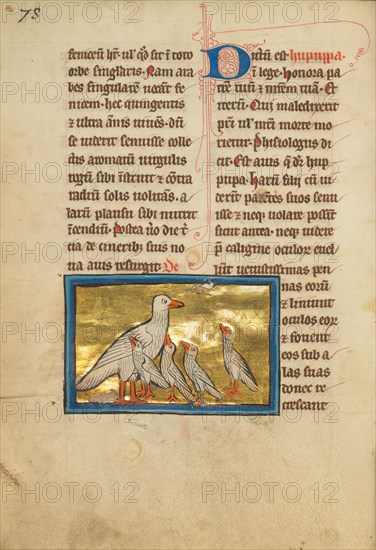 78
fenicem hr̄ ul' qđ sit ī toto
orbe singularis. Nam ara
bes singularē uocāt fe
nicem. hec quingentis
et ultra ānis uiuēs. dū
se uiderit senuisse colle
ctis aromatū uirgulis
rogū sibi īstruit et cōtra
radiū solis uolitās. a
larū plausu sibi nutrit
īcendiū. Postea nō die t̄
cia de cineribꝫ suis no
ua auis resurgit. De
Dictū est hupupa.
ī lege. honora pa
trē tuū et mrēm tuam. Et
iterū. Qui maledixerit
pri ul' mrī morte mo
rietur. Phisiologus di
cit. Est auis q̄ dr̄ hup
pupa. harū filii cū ui
derīt parētes suos senu
isse et neqꝫ uolare possēt
sicut antea. neqꝫ uidere
p̄ caligine oculor euel
lūt uetustissimas pen
nas eorū
et liniunt
oculos eor
et fouent
eos sub a
las suas
donec re
crescant
PHOTO12